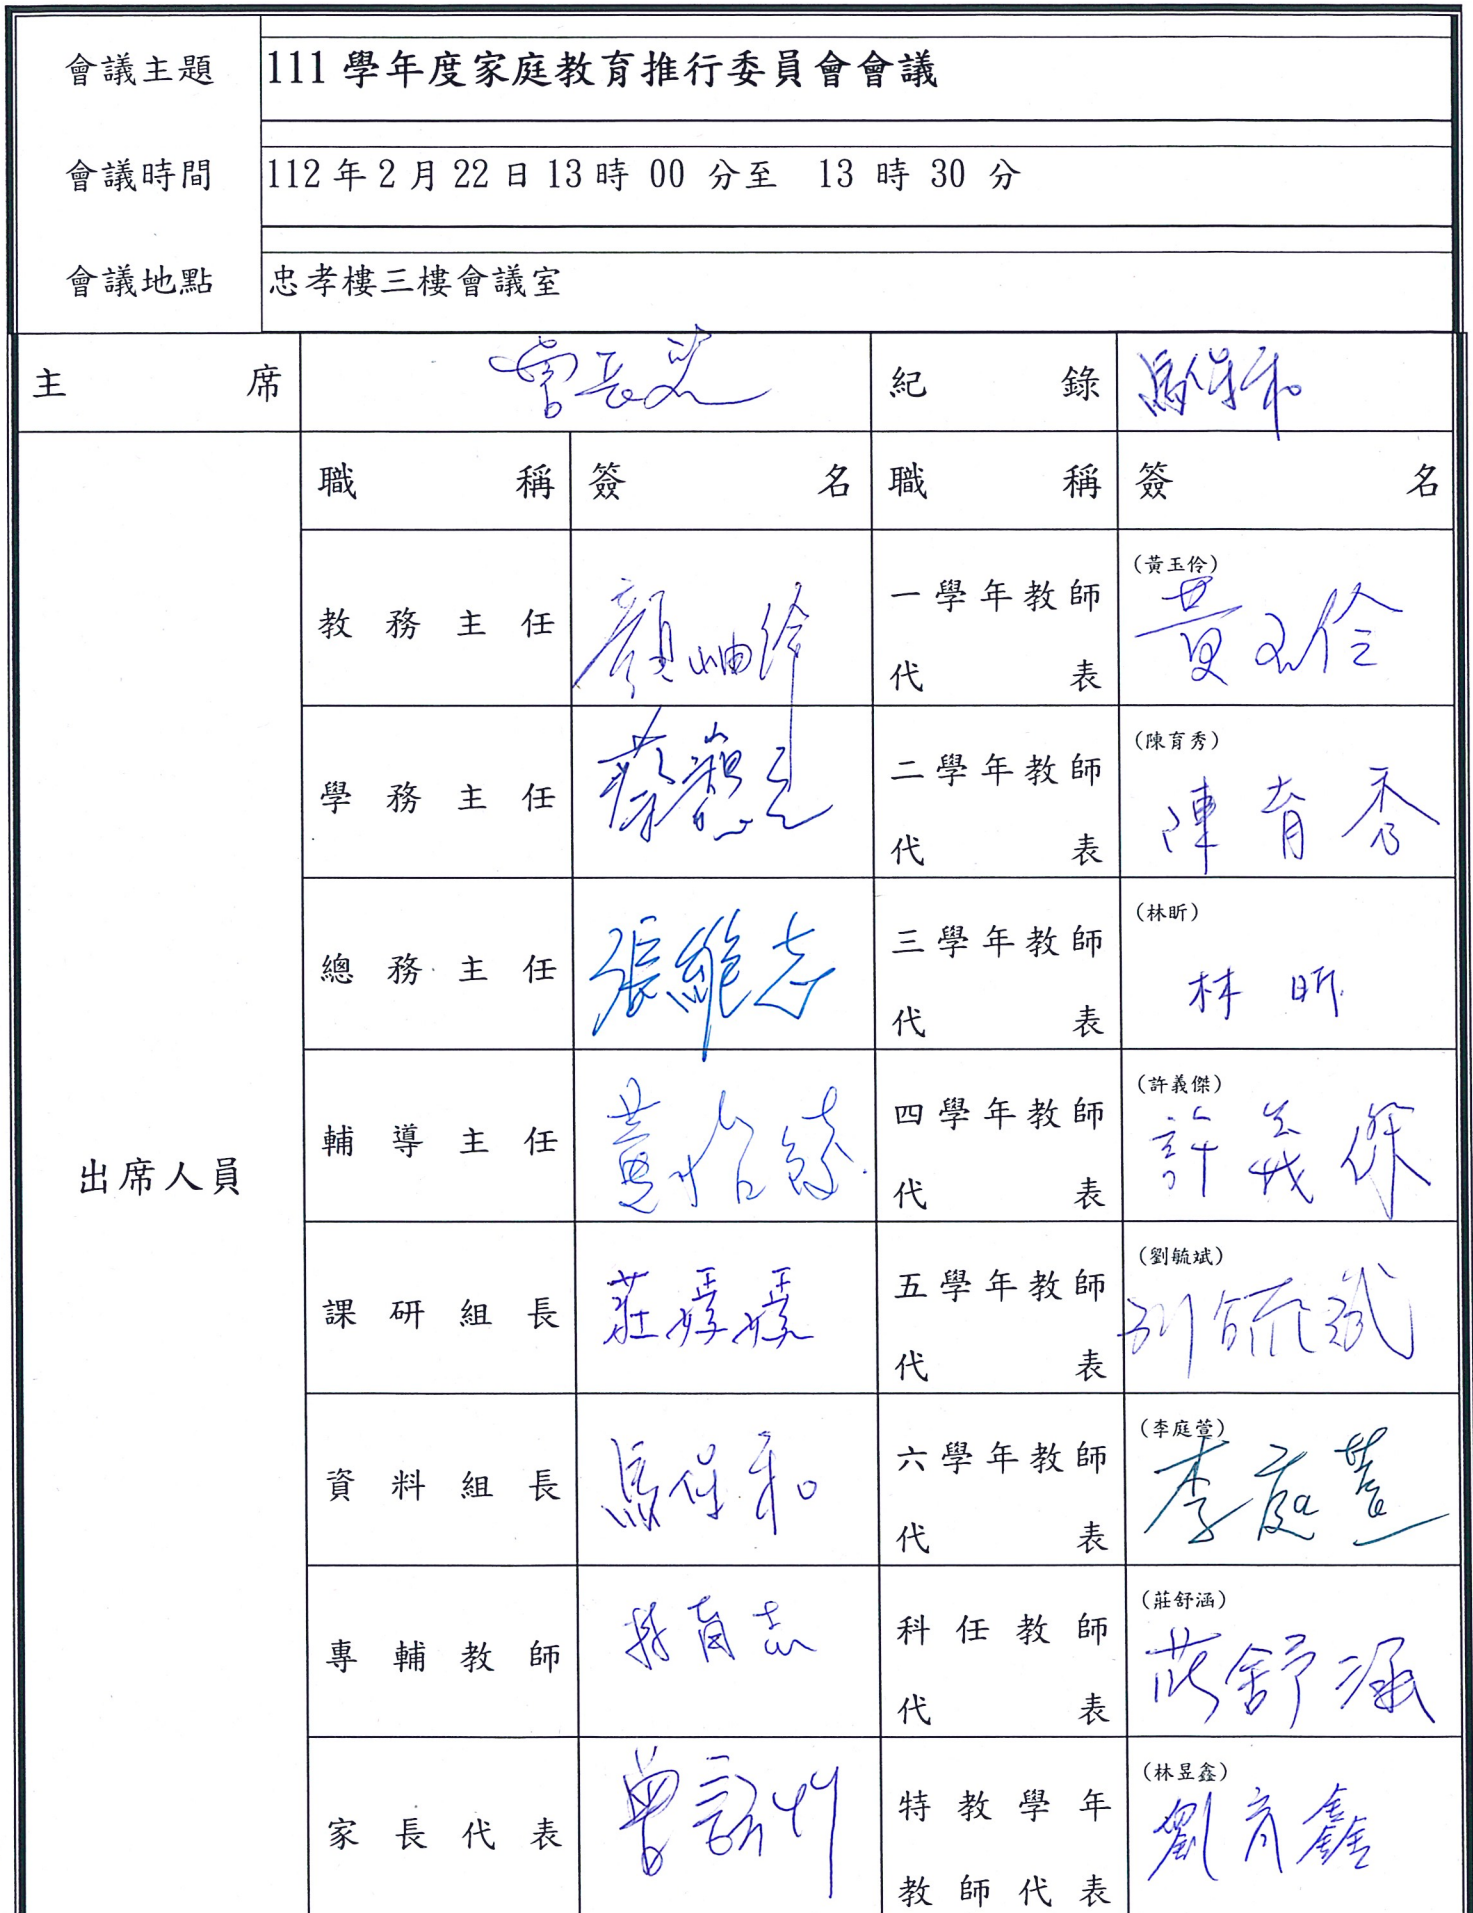 會議主題 111 學年度家庭教育推行委員會會議
會議時間 112 年 2 月 22 日 13 時 00 分至 13 時 30 分
會議地點 忠孝樓三樓會議室
主席 紀錄
職稱 簽名 職稱 簽名
出席人員
教務主任
一學年教師代表 (黃玉伶) 黃玉伶
學務主任
二學年教師代表 (陳育秀) 陳育秀
總務主任 張維志
三學年教師代表 (林昕) 林昕
輔導主任
四學年教師代表 (許義傑) 許義傑
課研組長 莊媛媛
五學年教師代表 (劉毓斌) 劉毓斌
資料組長
六學年教師代表 (李庭萱) 李庭萱
專輔教師
科任教師代表 (莊舒涵) 莊舒涵
家長代表
特教學年教師代表 (林昱鑫)